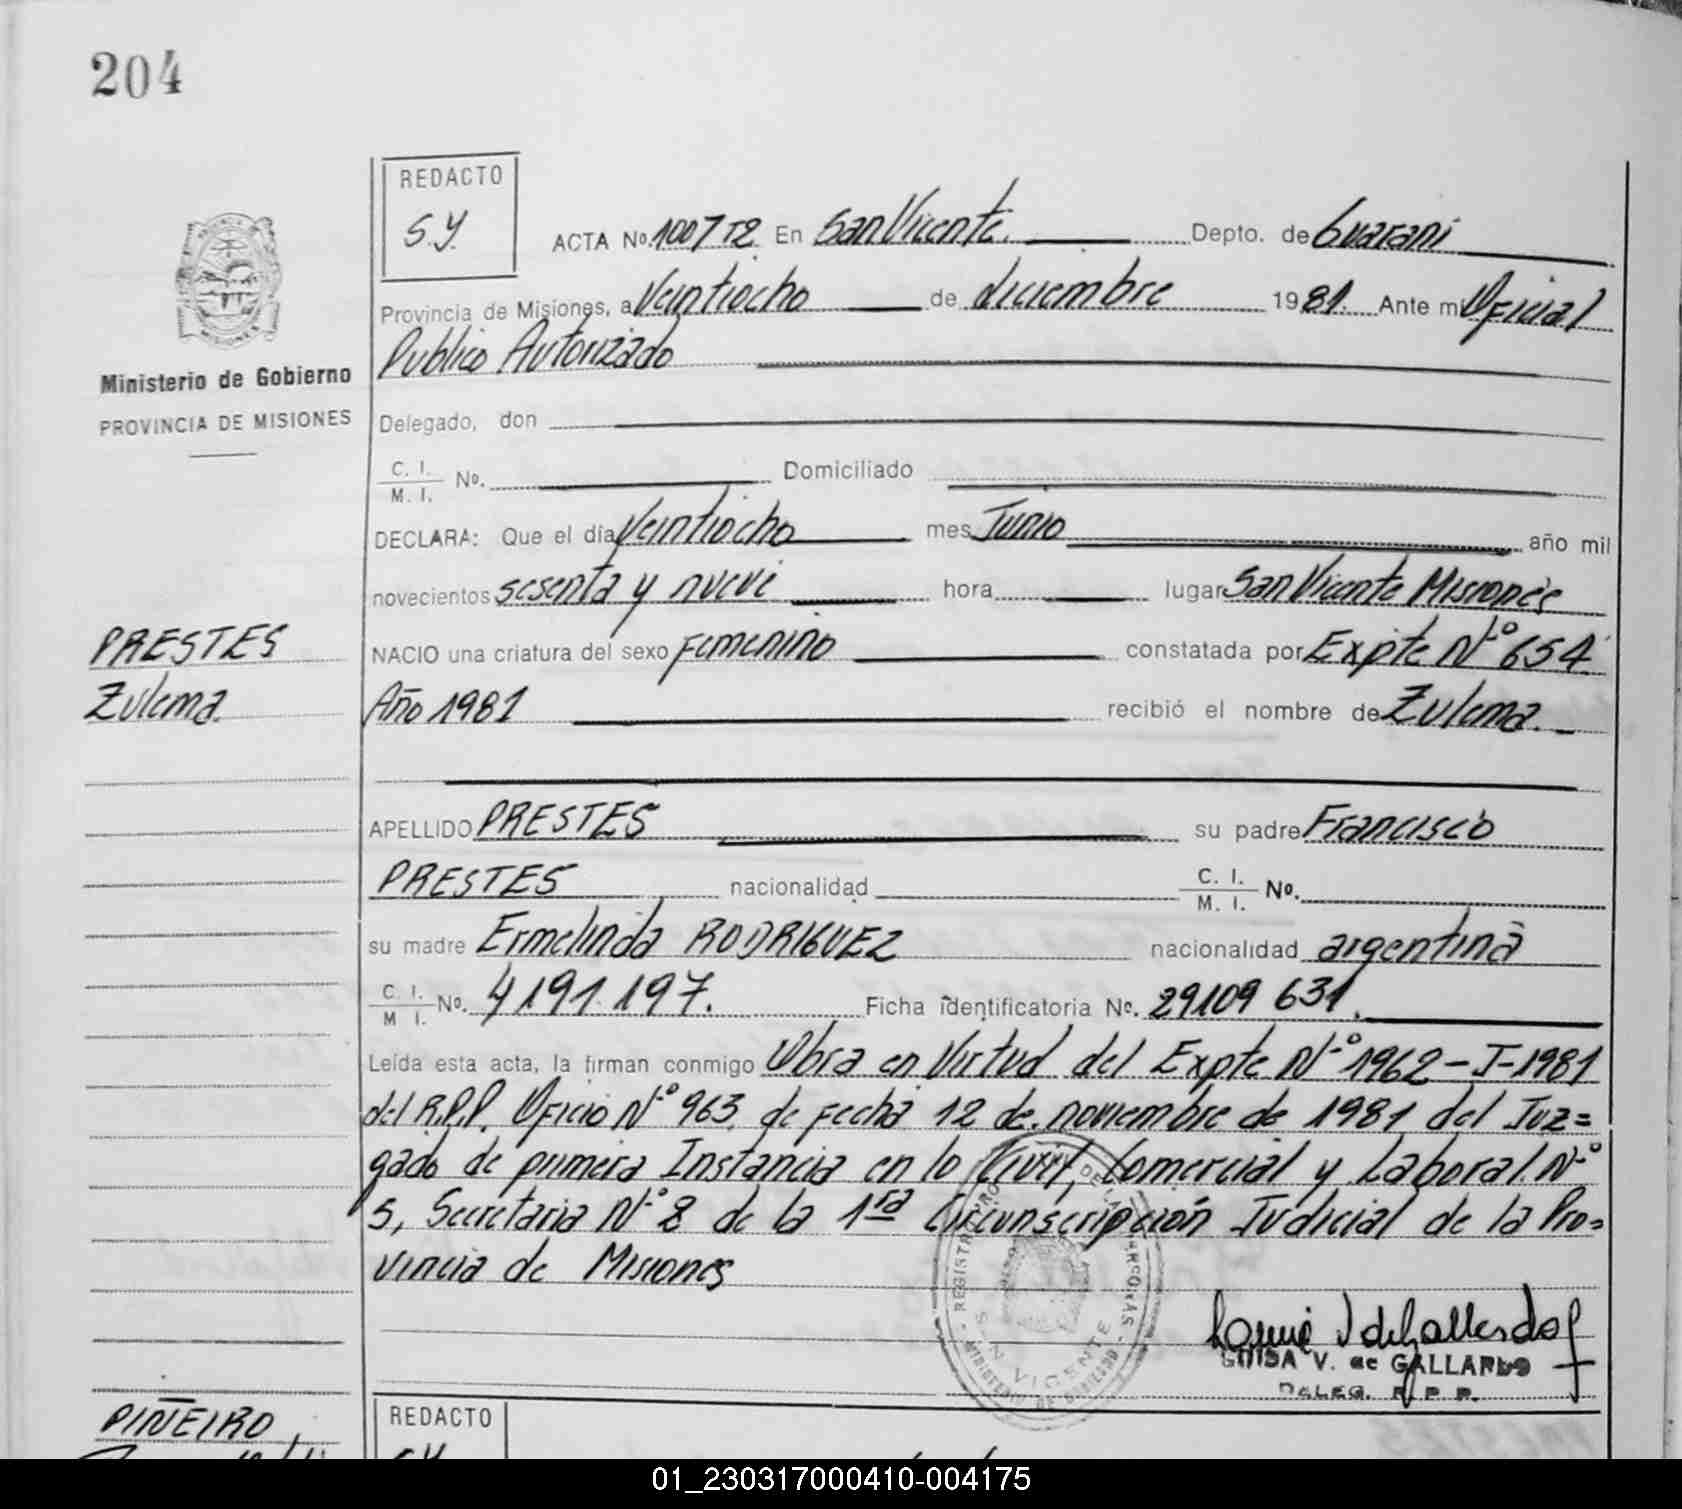 204
REDACTO
S.Y.
ACTA No. 1007 T2 En San Vicente. Depto. de Guarani
Provincia de Misiones, a Veintiocho de diciembre 1981. Ante mi Oficial
Publico Autorizado
Ministerio de Gobierno
PROVINCIA DE MISIONES
Delegado, don
C. I. / M. I. No. Domiciliado
DECLARA: Que el día Veintiocho mes Junio año mil
novecientos sesenta y nueve hora lugar San Vicente Misiones
PRESTES
Zulema.
NACIO una criatura del sexo Femenino constatada por Expte Nº 654
Año 1981 recibió el nombre de Zulema.
APELLIDO PRESTES su padre Francisco
PRESTES nacionalidad C. I. / M. I. No.
su madre Ermelinda RODRIGUEZ nacionalidad argentina
C. I. / M I. No. 4191.197. Ficha identificatoria No. 29109 631.
Leída esta acta, la firman conmigo Obra en Virtud del Expte Nº 1962-J-1981
del R.P.P. Oficio Nº 963, de fecha 12 de noviembre de 1981 del Juz=
gado de primera Instancia en lo Civil, Comercial y Laboral. Nº
5, Secretaria Nº 8 de la 1ra Circunscripción Judicial de la Pro=
vincia de Misiones
LUISA V. de GALLARDO
DELEG. R. P. P.
PIÑEIRO
REDACTO
S.Y.
01_230317000410-004175